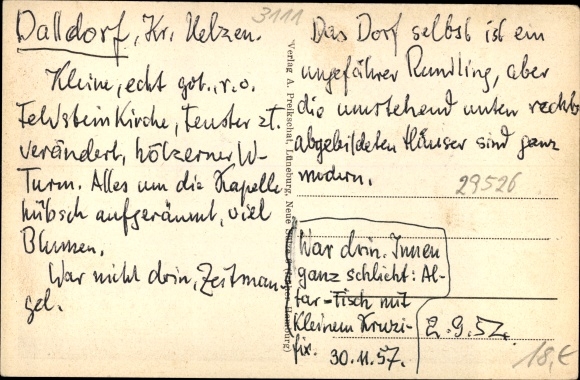 Dalldorf, Kr. Uelzen.
Kleine, echt got., r.o.
Feldsteinkirche, Fenster zT.
verändert, hölzerner W-
Turm. Alles um die Kapelle
hübsch aufgeräumt, viel
Blumen.
War nicht drin, Zeitman-
gel.
3111
Verlag A. Preikschat, Lüneburg, Neue
Hamburg)
Das Dorf selbst ist ein
ungefährer Rundling, aber
die umstehend unten rechts
abgebildeten Häuser sind ganz
modern.
29526
War drin. Innen
ganz schlicht: Al-
tar-Tisch mit
kleinem Kruzi-
fix. 30.11.57.
2.9.52.
18,€